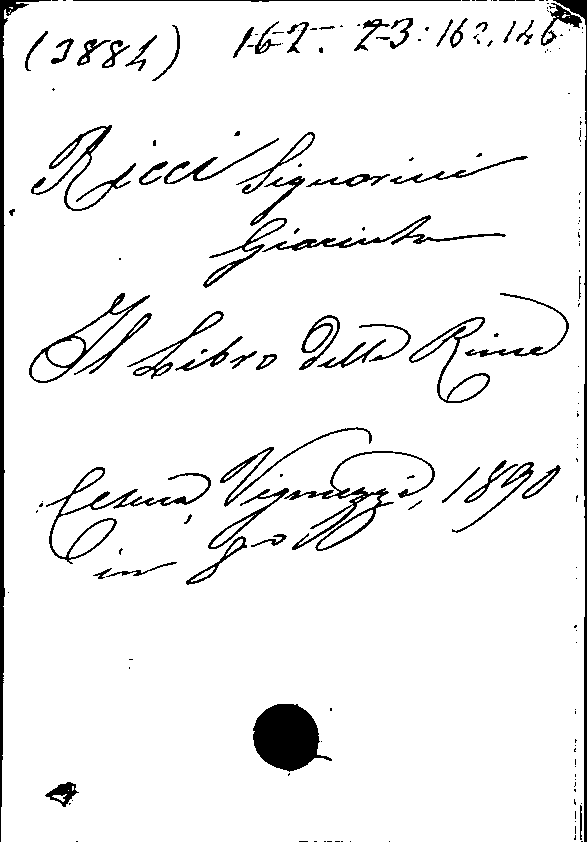 (3884) 162. 23: 162,146
Ricci Signorini
Giacinto
Il Libro delle Rime
Cesena, Vignuzzi, 1890
in 8º